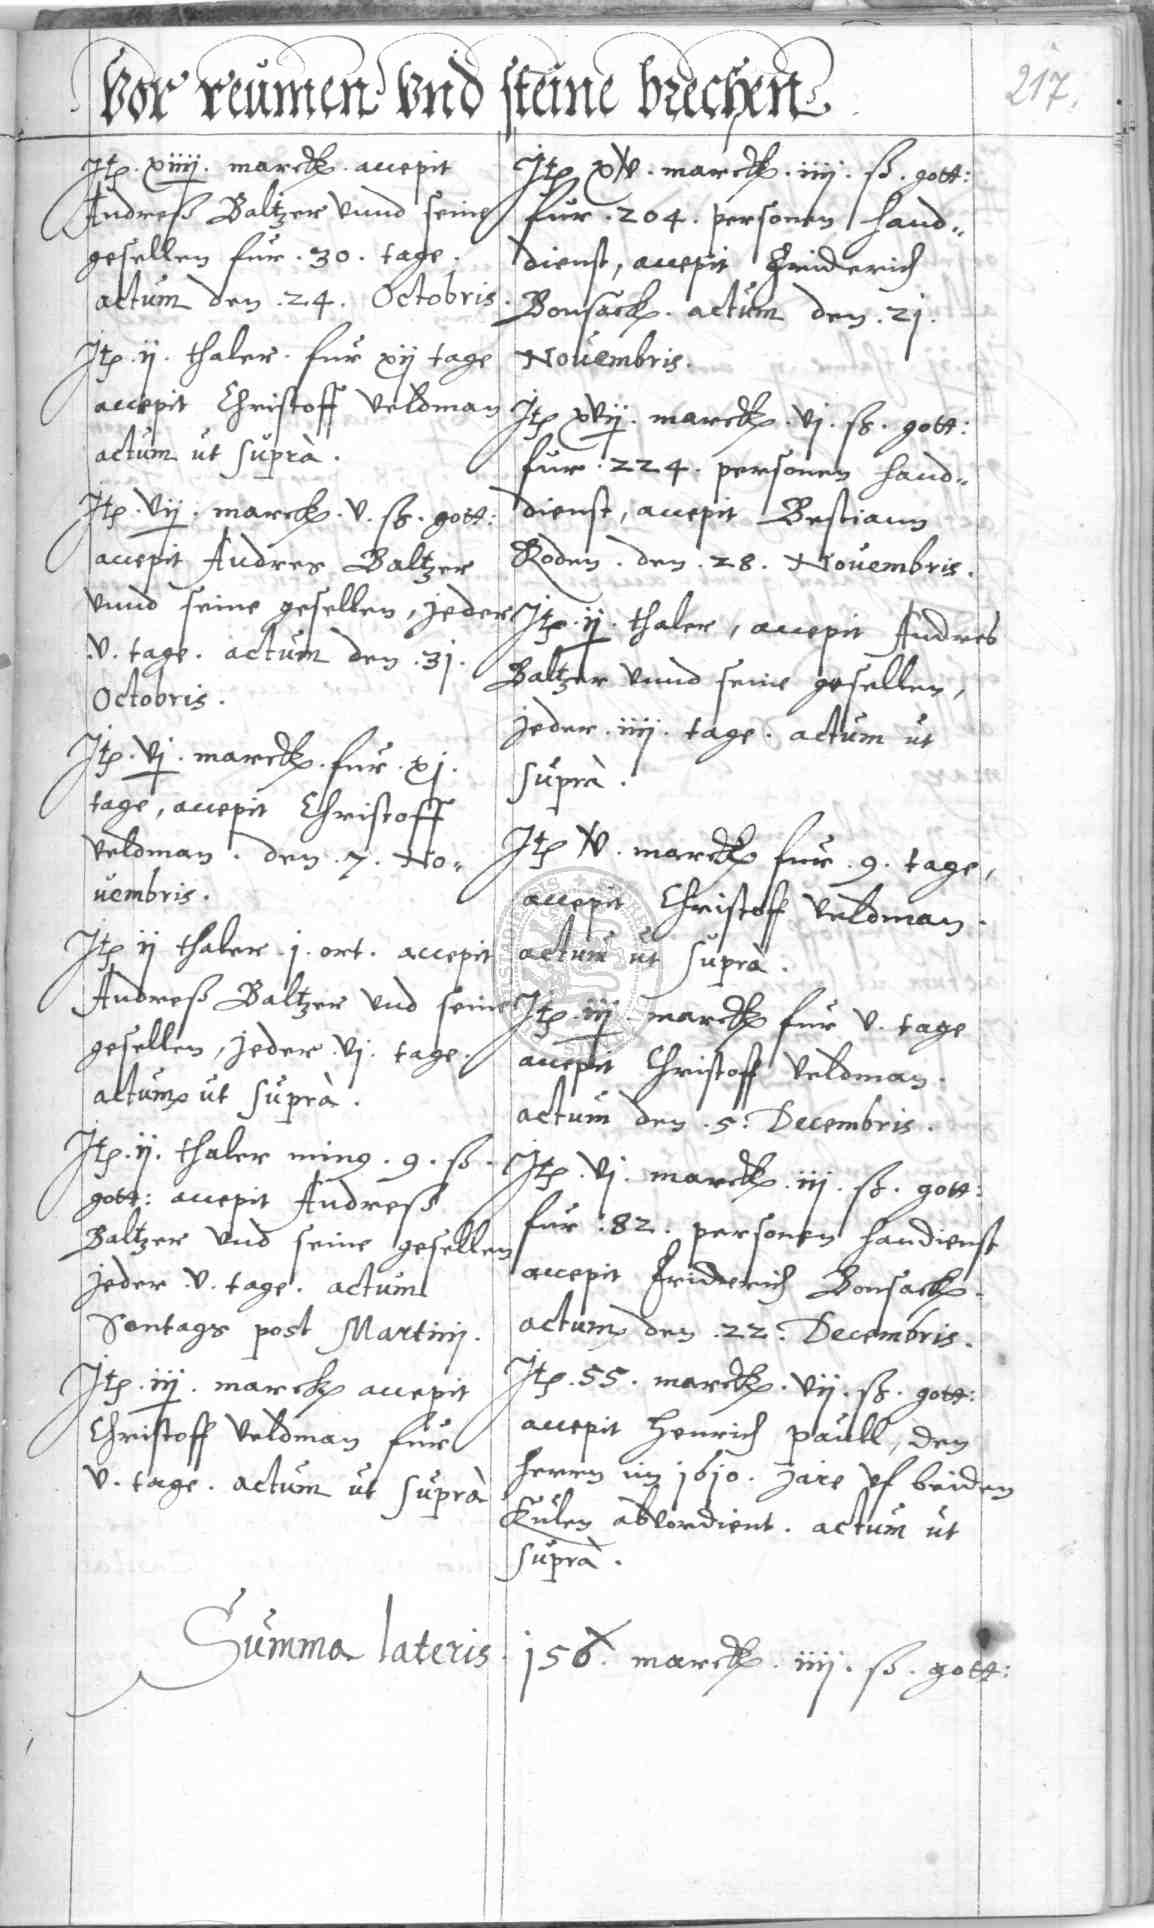 Vor reumen vnd steine brechen
217.
Jtem . xiiij . marck . accepit
Andreß Baltzer vnnd seine
gesellen fur . 30 . tage .
actum den . 24 . Octobris .
Jtem . ij . thaler . fur xij tage
accepit Christoff Veldman
actum ut suprà .
Jtem . vij . marck . v . ß . gott:
accepit Andres Baltzer
vnnd seine gesellen, jeder
.v. tage . actum den . 31 .
Octobris .
Jtem . vj . marck . fur . xj .
tage, accepit Christoff
Veldman . den . 7 . No=
uembris .
Jtem ij thaler . j . ort . accepit
Andreß Baltzer vnd seine
gesellen, jeder . vj . tage .
actum ut suprà .
Jtem . ij . thaler minus . 9 . ß .
gott: accepit Andreß
Baltzer vnd seine gesellen
jeder . v . tage . actum
Sontags post Martinj .
Jtem . iij . marck accepit
Christoff Veldman fur
v . tage . actum ut suprà
Jtem xv . marck . iiij . ß . gott:
fur . 204 . personen hand=
dienst, accepit Friderich
Bonsack . actum den . 21 .
Nouembris .
Jtem xvij . marck . vj . ß . gott:
fur . 224 . personen hand=
dienst, accepit Bestiann
Roden . den . 28 . Nouembris .
Jtem . ij . thaler, accepit Andres
Baltzer vnnd seine gesellen,
jeder . iiij . tage . actum ut
suprà .
Jtem v . marck fur . 9 . tage,
accepit Christoff Veldman .
actum ut suprà .
Jtem . iij . marck fur v . tage
accepit Christoff Veldman .
actum den . 5 . Decembris .
Jtem . vj . marck . iij . ß . gott:
fur . 82 . personen handienst
accepit Friderich Bonsack .
actum den . 22 . Decembris .
Jtem . 55 . marck . vij . ß . gott:
accepit Henrich Paull, den
herrn im 1610 . jare vf beiden
Kulen abvordient . actum ut
suprà .
Summa lateris . 156 . marck . iiij . ß . gott: